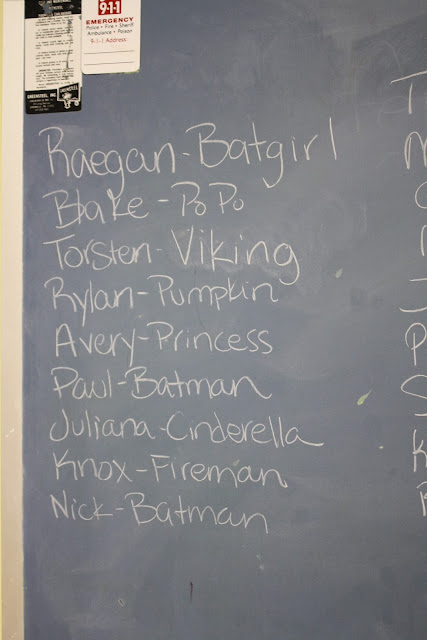 9-1-1
EMERGENCY
Police • Fire • Sheriff
Ambulance • Poison
9-1-1 Address:
GREENSTEEL, INC.
Raegan-Batgirl
Blake-PoPo
Torsten-Viking
Rylan-Pumpkin
Avery-Princess
Paul-Batman
Juliana-Cinderella
Knox-Fireman
Nick-Batman